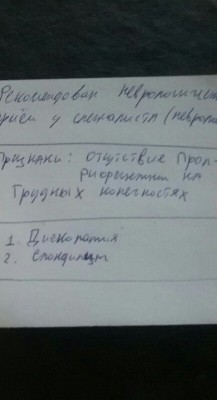 Рекомендован неврологичес
приём у специалиста (невроло
Признаки: отсутствие проп-
риорецепции на
грудных конечностях
1. Дископатия
2. Спондилит